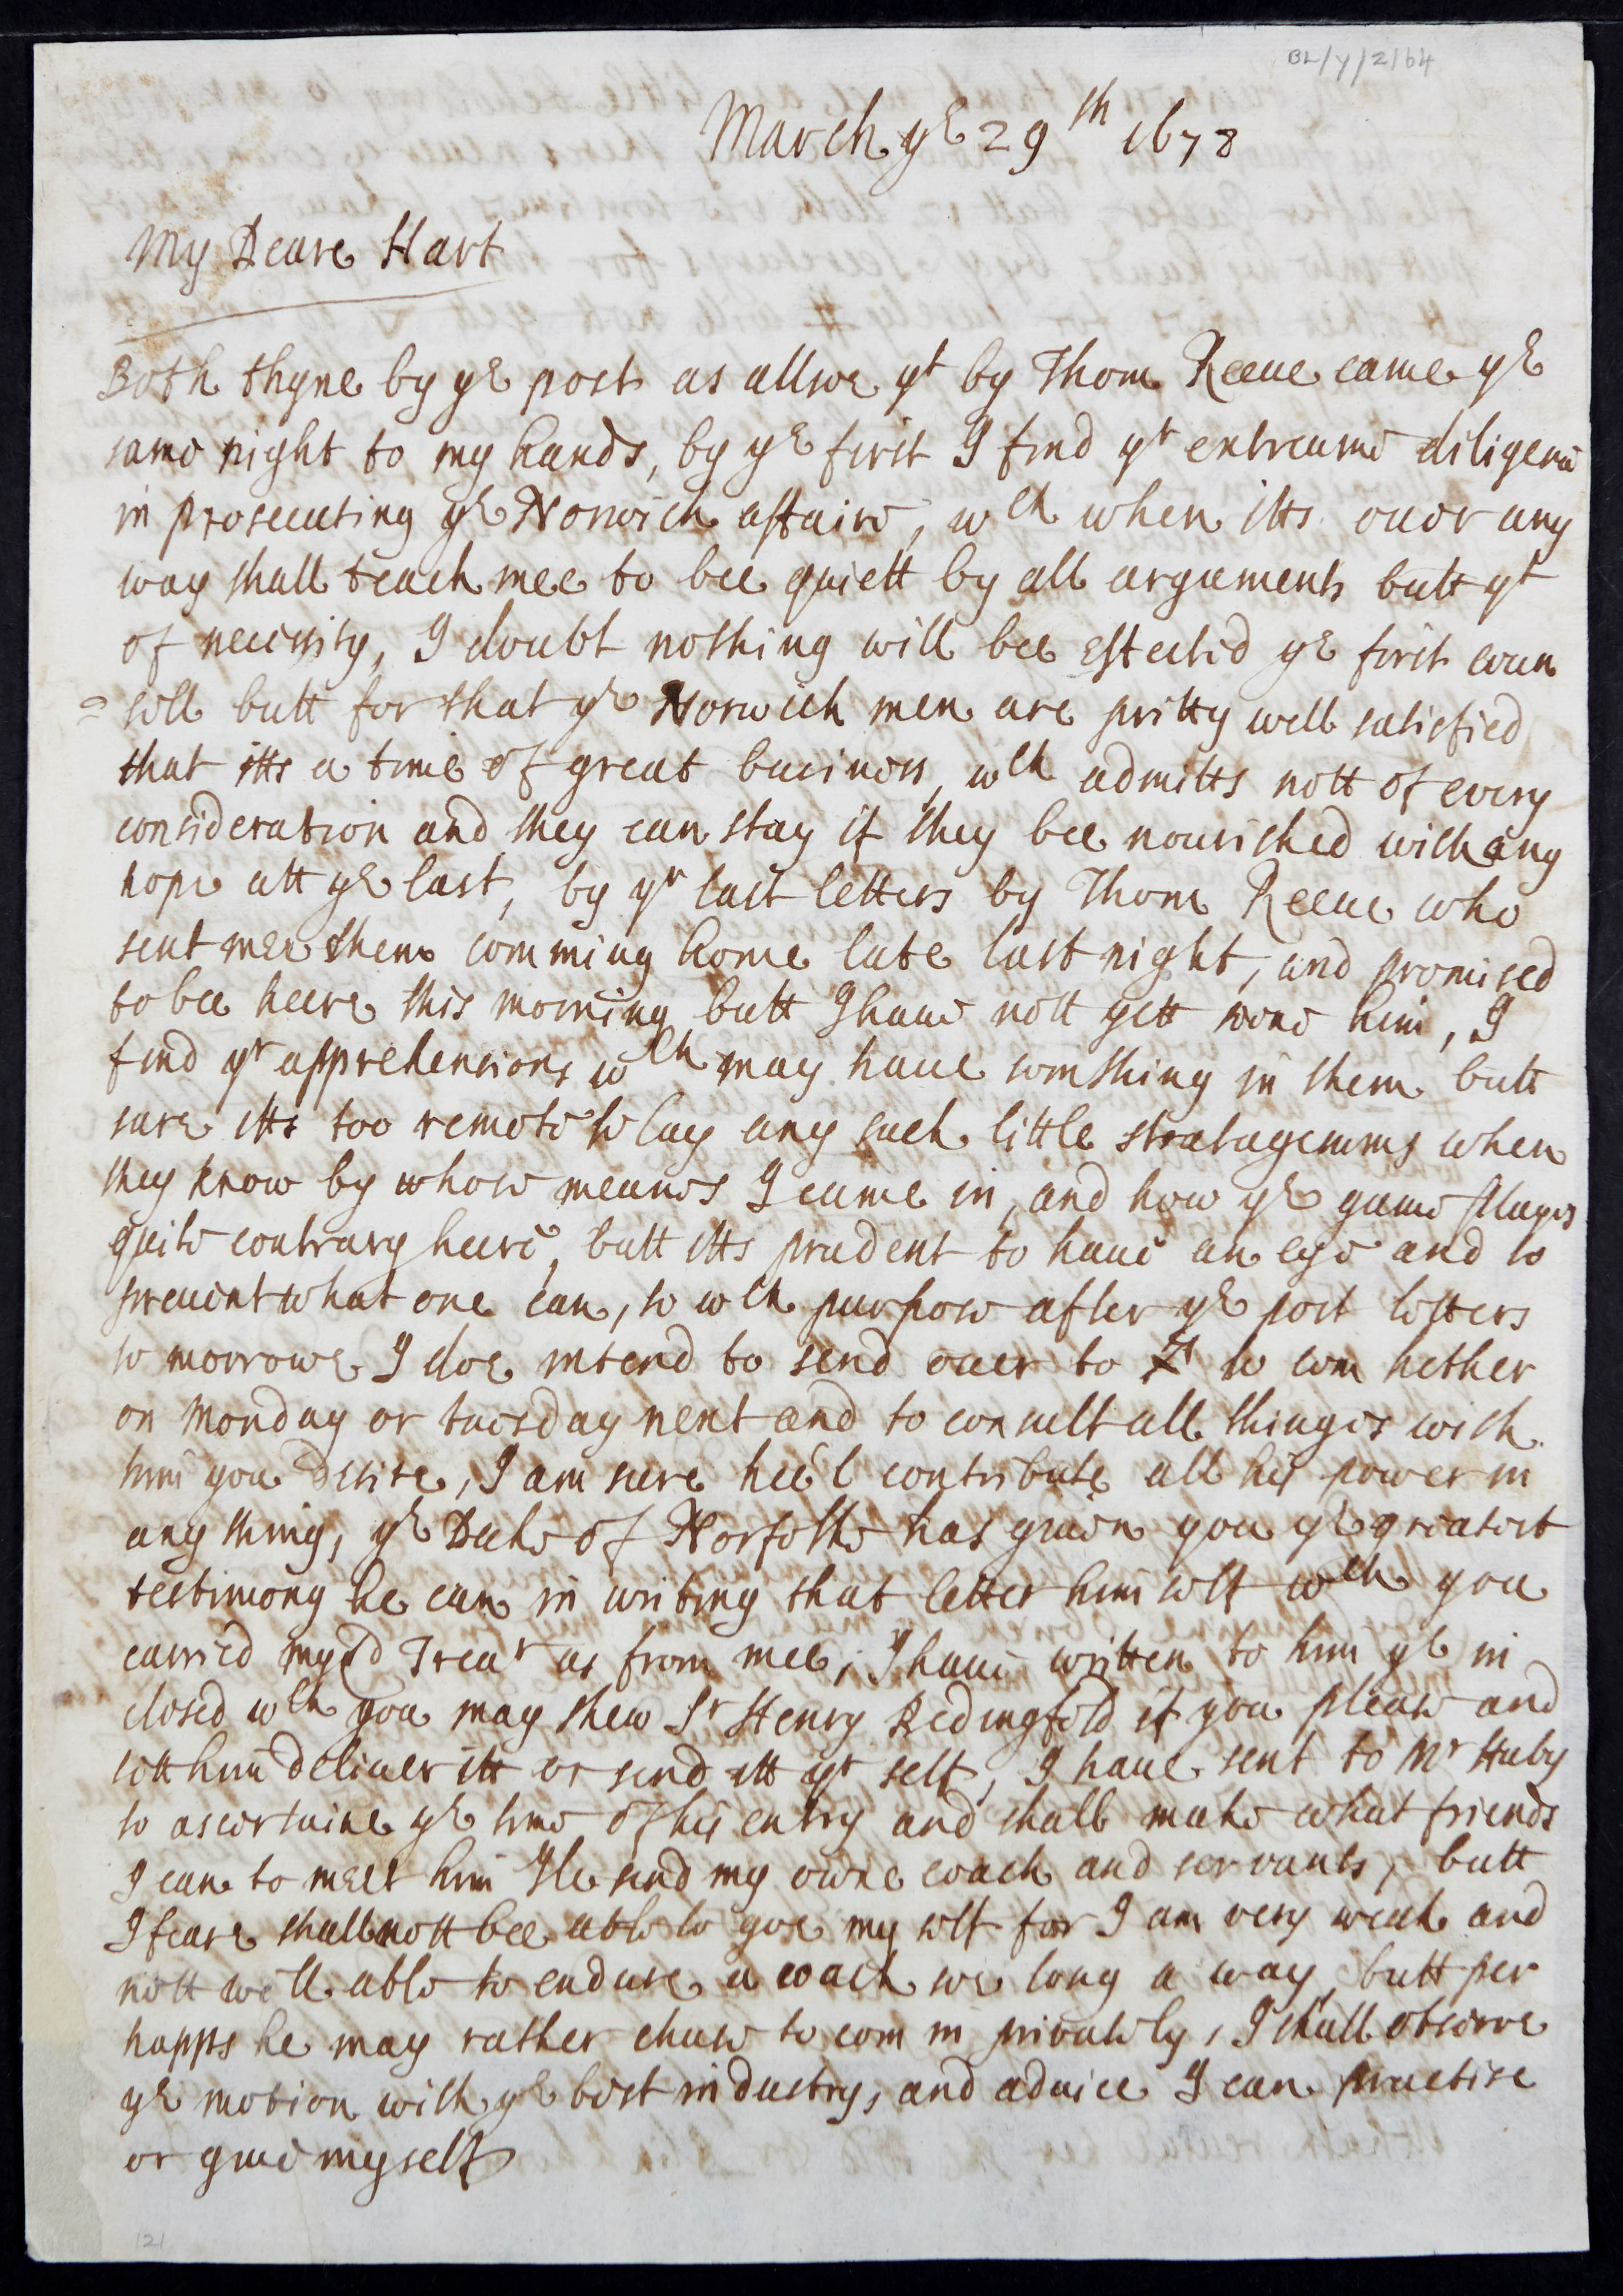 BL/Y/2/64
March ye 29th 1678
My Deare Hart
Both thyne by ye post as allsoe yt by Thom Reeve came ye
same night to my hands, by ye first I find yr extreame diligence
in prosecuting ye Norwich affaire, wch when itts over any
way shall teach mee to bee quiett by all arguments butt yt
of necessity, I doubt nothing will bee effected ye first coun
=sell butt for that ye Norwich men are pritty well satisfied
that itts a time of great buisiness, wch admitts nott of every
consideration and they can stay if they bee nourished with any
hope att ye last, by yr last letters by Thom Reeve who
sent mee them comming home late last night, and promised
to bee heere this morning butt I have nott yett seene him, I
find yr apprehensions wch may have somthing in them butt
sure itts too remote to lay any such little stratagemms when
they know by whose meanes I came in, and how ye game playes
quite contrary heere, butt itts prudent to have an eye and to
prevent what one can, to wch purpose after ye post letters
to morrowe I doe intend to send over to to com hether
on Monday or tuesday next and to consult all thinges with
him you desire, I am sure hee'l contribute all his power in
any thing, ye Duke of Norfolke has given you ye greatest
testimony he can in writing that letter him self wch you
carried my Ld Trear as from mee, I have written to him ye in
closed wch you may shew Sr Henry Bedingfeld if you please and
lett him deliver itt or send itt yr self, I have sent to Mr Huby
to ascertaine ye time of his entry and shall make what friends
I can to meet him Ile send my owne coach and servants, butt
I feare shall nott bee able to goe my self for I am very weak and
nott well able to endure a coach soe long a way, butt per
happs he may rather chuse to com in privately, I shall observe
ye motion with ye best industry, and advice I can practise
or give myself
121